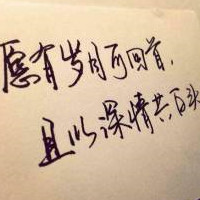 愿有岁月可回首，
且以深情共白头